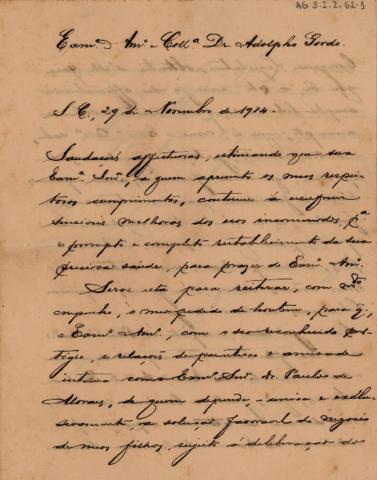 AG 3.2.2-62-1
Exmº. Amº e Collª Dr. Adolpho Gordo.
S. C., 29 de Novembro de 1914.
Saudações affectuosas; estimando que sua
Exmª. Snrª., a quem apresento os meus respei-
tosos cumprimentos, continue a
sensiveis melhoras dos seus incommodos, pª
o prompto e completo restabelecimento da sua
preciosa saúde, para prazer do Exmº. Amº.
Serve esta para reiterar, com mtº
empenho, o meu pedido de hontem, para q,
o Exmº Amº, com o seo reconhecido pres-
tigio, e relações de parentesco e amisade
intima com o Exmº. Snr. Dr. Paulo de
Moraes, de quem depende, - unica e exclu-
sivamente, a solução favoravel do negocio
de meos filhos, sujeito á deliberação dos